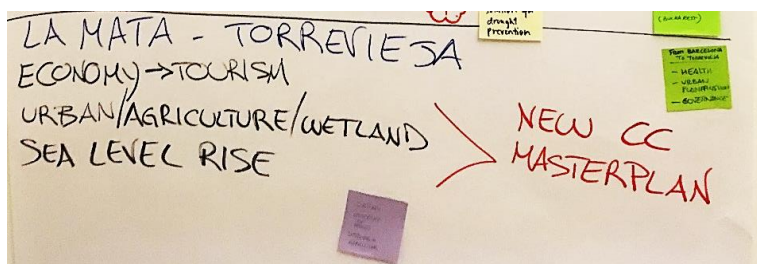 drought
prevention
(BUCHAREST)
LA MATA - TORREVIESA
ECONOMY→TOURISM
URBAN/AGRICULTURE/WETLAND
SEA LEVEL RISE
NEW CC
MASTERPLAN
From BARCELONA
TO TORREVIEJA
- HEALTH
- URBAN
PLANNING
- GOVERNANCE